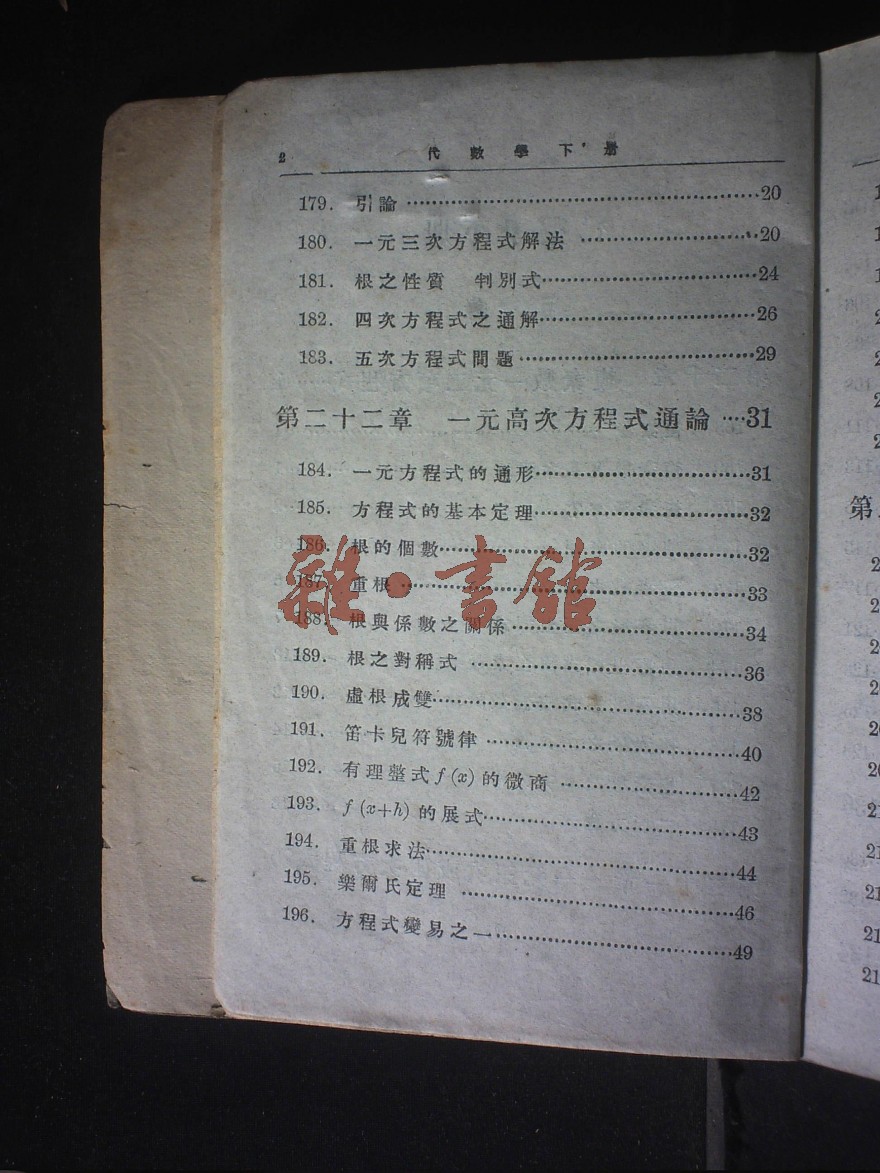 2 代數學下册
179. 引論 ……20
180. 一元三次方程式解法 ……20
181. 根之性質 判別式……24
182. 四次方程式之通解……26
183. 五次方程式問題……29
第二十二章 一元高次方程式通論……31
184. 一元方程式的通形……31
185. 方程式的基本定理……32
186. 根的個數……32
187. 重根……33
188. 根與係數之關係……34
189. 根之對稱式……36
190. 虛根成雙……38
191. 笛卡兒符號律……40
192. 有理整式 f(x) 的微商……42
193. f(x+h) 的展式……43
194. 重根求法……44
195. 樂爾氏定理……46
196. 方程式變易之一……49
雜·書館
第